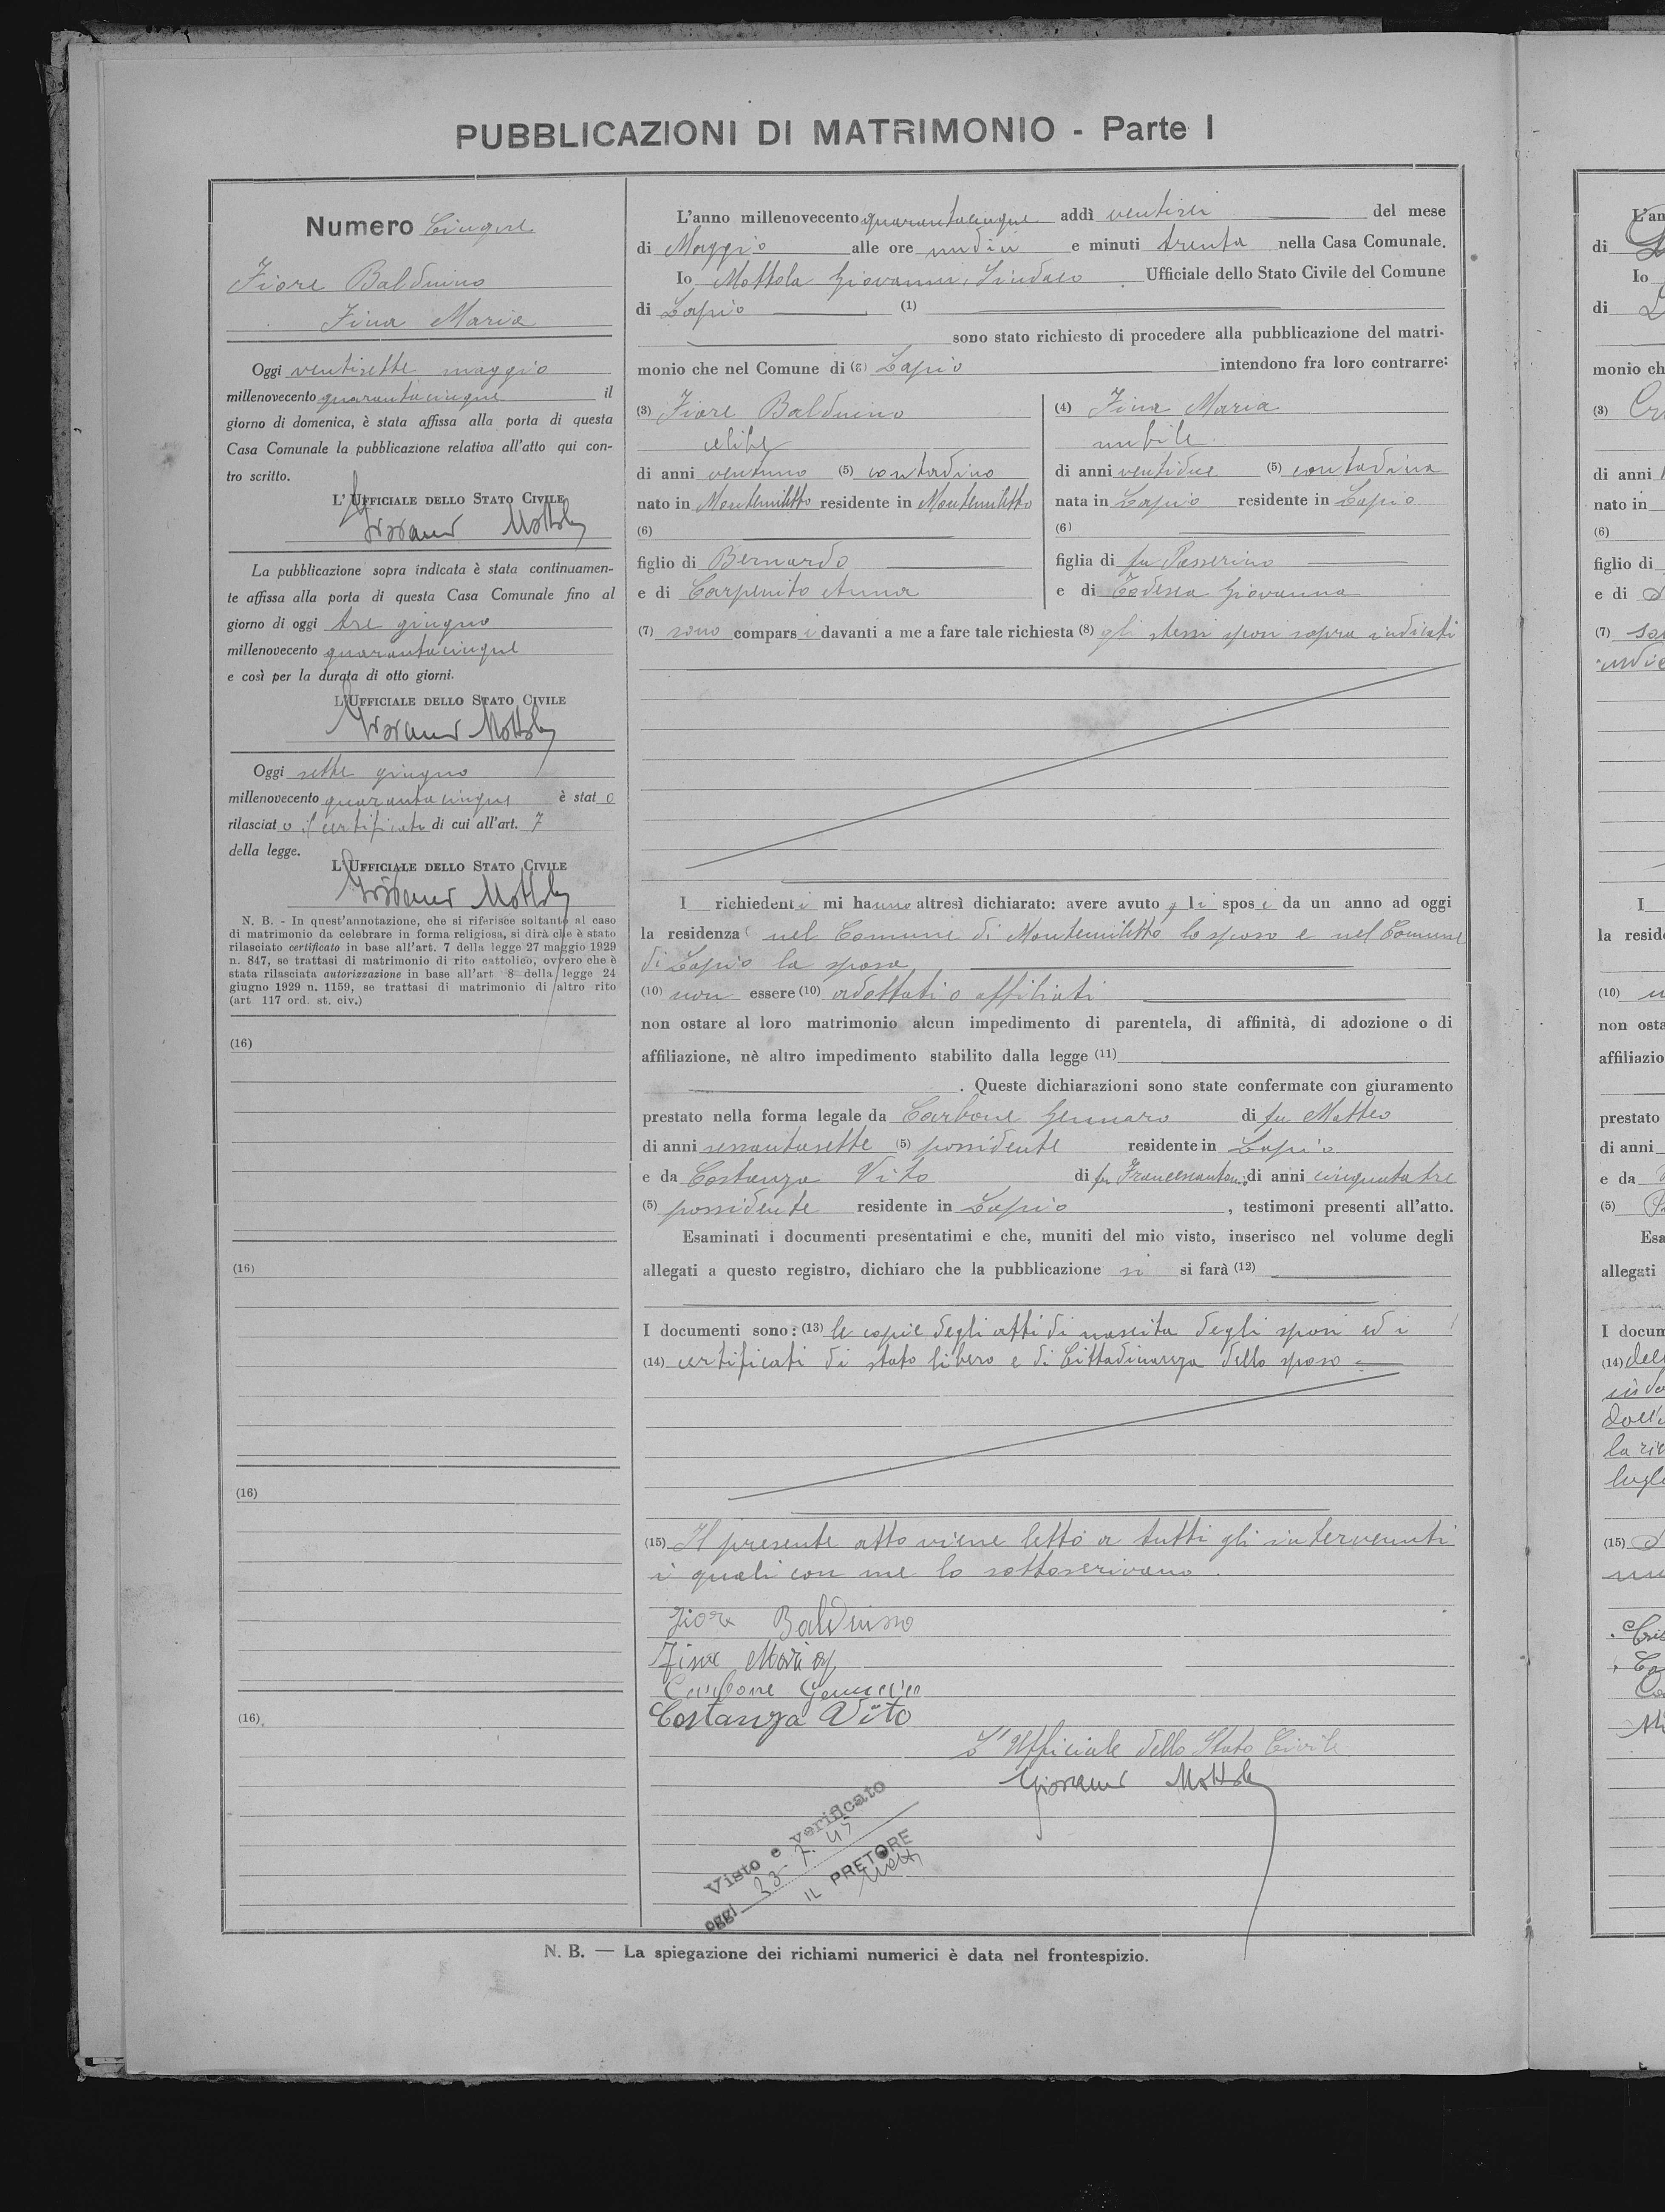 PUBBLICAZIONI DI MATRIMONIO - Parte I
Numero Cinque
Fiore Balduino
Fina Maria
Oggi ventisette maggio
millenovecento quarantacinque il
giorno di domenica, è stata affissa alla porta di questa
Casa Comunale la pubblicazione relativa all'atto qui con-
tro scritto.
L'UFFICIALE DELLO STATO CIVILE
Giovanni Mottola
La pubblicazione sopra indicata è stata continuamen-
te affissa alla porta di questa Casa Comunale fino al
giorno di oggi tre giugno
millenovecento quarantacinque
e così per la durata di otto giorni.
L'UFFICIALE DELLO STATO CIVILE
Giovanni Mottola
Oggi sette giugno
millenovecento quarantacinque è stat o
rilasciat o il certificato di cui all'art. 7
della legge.
L'UFFICIALE DELLO STATO CIVILE
Giovanni Mottola
N. B. - In quest'annotazione, che si riferisce soltanto al caso
di matrimonio da celebrare in forma religiosa, si dirà che è stato
rilasciato certificato in base all'art. 7 della legge 27 maggio 1929
n. 847, se trattasi di matrimonio di rito cattolico, ovvero che è
stata rilasciata autorizzazione in base all'art 8 della legge 24
giugno 1929 n. 1159, se trattasi di matrimonio di altro rito
(art 117 ord. st. civ.)
(16)
(16)
(16)
(16)
L'anno millenovecento quarantacinque addì ventisei del mese
di Maggio alle ore undici e minuti trenta nella Casa Comunale.
Io Mottola Giovanni, Sindaco Ufficiale dello Stato Civile del Comune
di Lapio (1)
sono stato richiesto di procedere alla pubblicazione del matri-
monio che nel Comune di (2) Lapio intendono fra loro contrarre:
(3) Fiore Balduino
celibe
di anni ventuno (5) contadino
nato in Montemiletto residente in Montemiletto
(6)
figlio di Bernardo
e di Carpenito Anna
(4) Fina Maria
nubile.
di anni ventidue (5) contadina
nata in Lapio residente in Lapio
(6)
figlia di fu Passerino
e di Todesca Giovanna
(7) sono compars i davanti a me a fare tale richiesta (8) gli stessi sposi sopra indicati
I richiedenti mi hanno altresì dichiarato: avere avuto g l i spos i da un anno ad oggi
la residenza nel Comune di Montemiletto lo sposo e nel Comune
di Lapio la sposa
(10) non essere (10) adottati o affiliati
non ostare al loro matrimonio alcun impedimento di parentela, di affinità, di adozione o di
affiliazione, nè altro impedimento stabilito dalla legge (11)
. Queste dichiarazioni sono state confermate con giuramento
prestato nella forma legale da Carbone Gennaro di fu Matteo
di anni sessantasette (5) possidente residente in Lapio
e da Costanza Vito di fu Francescantonio di anni cinquantatre
(5) possidente residente in Lapio , testimoni presenti all'atto.
Esaminati i documenti presentatimi e che, muniti del mio visto, inserisco nel volume degli
allegati a questo registro, dichiaro che la pubblicazione si si farà (12)
I documenti sono: (13) le copie degli atti di nascita degli sposi ed i
(14) certificati di stato libero e di Cittadinanza dello sposo
(15) Il presente atto viene letto a tutti gli intervenuti
i quali con me lo sottoscrivono.
Fiore Balduino
Fina Maria
Carbone Gennaro
Costanza Vito
L'Ufficiale dello Stato Civile
Giovanni Mottola
Visto e verificato
oggi 23-7.45
IL PRETORE
N. B. — La spiegazione dei richiami numerici è data nel frontespizio.
L'an
di
Io
di
monio ch
(3)
di anni
nato in
(6)
figlio di
e di
(7)
I
la reside
(10)
non osta
affiliazio
prestato
di anni
e da
(5)
Esa
allegati
I docum
(14)
(15)